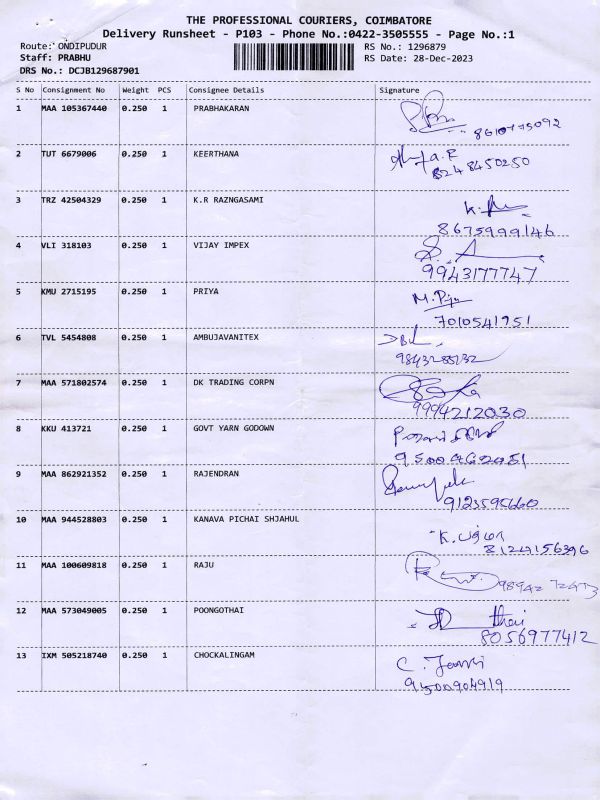 THE PROFESSIONAL COURIERS, COIMBATORE
Delivery Runsheet - P103 - Phone No.:0422-3505555 - Page No.:1
Route: ONDIPUDUR RS No.: 1296879
Staff: PRABHU RS Date: 28-Dec-2023
DRS No.: DCJB129687901
S No Consignment No Weight PCS Consignee Details Signature
1 MAA 105367440 0.250 1 PRABHAKARAN
8610775092
2 TUT 6679006 0.250 1 KEERTHANA
8248450250
3 TRZ 42504329 0.250 1 K.R RAZNGASAMI
8675999146
4 VLI 318103 0.250 1 VIJAY IMPEX
9943177747
5 KMU 2715195 0.250 1 PRIYA
M. Priya
7010541951
6 TVL 5454808 0.250 1 AMBUJAVANITEX
7 MAA 571802574 0.250 1 DK TRADING CORPN
9994212030
8 KKU 413721 0.250 1 GOVT YARN GODOWN
9 MAA 862921352 0.250 1 RAJENDRAN
9123595660
10 MAA 944528803 0.250 1 KANAVA PICHAI SHJAHUL
8124156396
11 MAA 100609818 0.250 1 RAJU
12 MAA 573049005 0.250 1 POONGOTHAI
thai
8056977412
13 IXM 505218740 0.250 1 CHOCKALINGAM
9500904919